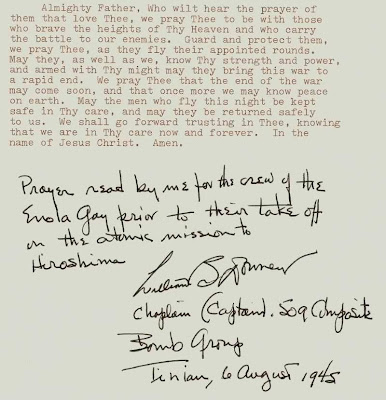 Almighty Father, Who wilt hear the prayer of
them that love Thee, we pray Thee to be with those
who brave the heights of Thy Heaven and who carry
the battle to our enemies. Guard and protect them,
we pray Thee, as they fly their appointed rounds.
May they, as well as we, know Thy strength and power,
and armed with Thy might may they bring this war to
a rapid end. We pray Thee that the end of the war
may come soon, and that once more we may know peace
on earth. May the men who fly this night be kept
safe in Thy care, and may they be returned safely
to us. We shall go forward trusting in Thee, knowing
that we are in Thy care now and forever. In the
name of Jesus Christ. Amen.
Prayer read by me for the crew of the
Enola Gay prior to their take off
on the atomic mission to
Hiroshima
William B Downey
Chaplain (Captain). 509 Composite
Bomb Group
Tinian, 6 August 1945